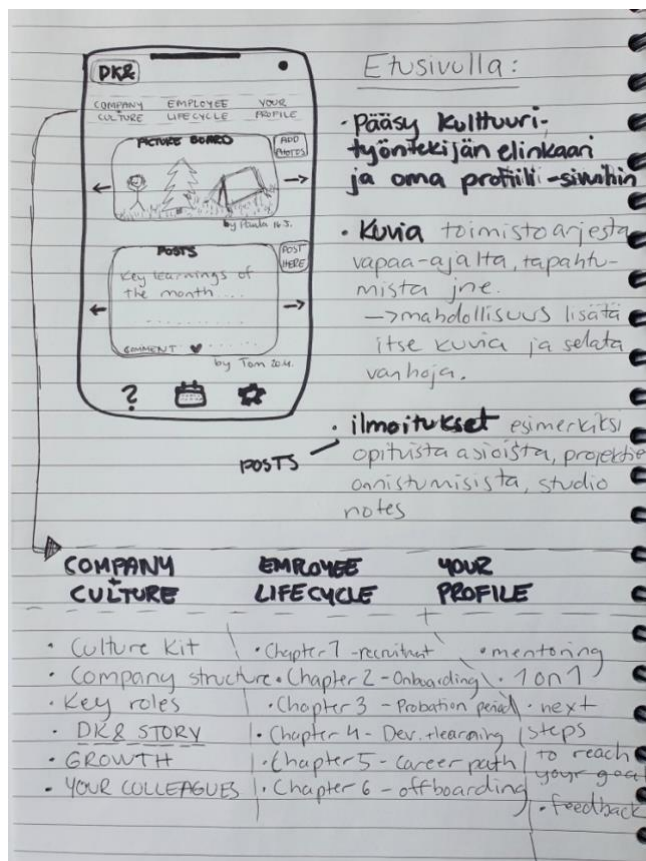 DK&
COMPANY EMPLOYEE YOUR
CULTURE LIFECYCLE PROFILE
PICTURE BOARD
ADD
PHOTOS
by Paula 16.3.
POSTS
POST
HERE
Key learnings of
the month....
COMMENT
by Tom 20.4.
?
Etusivulla:
• Pääsy kulttuuri-
työntekijän elinkaari
ja oma profiili-sivuihin
• Kuvia toimistoarjesta
vapaa-ajalta, tapahtu-
mista jne.
→ mahdollisuus lisätä
itse kuvia ja selata
vanhoja.
• ilmoitukset esimerkiksi
opituista asioista, projektie
onnistumisista, studio
notes
POSTS
COMPANY
+
CULTURE
• Culture Kit
• Company structure
• Key roles
• DK& STORY
• GROWTH
• YOUR COLLEAGUES
EMPLOYEE
LIFECYCLE
• Chapter 1 - recruitment
• Chapter 2 - Onboarding
• Chapter 3 - Probation period
• Chapter 4 - Dev. + learning
• Chapter 5 - Career path
• Chapter 6 - offboarding
YOUR
PROFILE
• mentoring
• 1 on 1
• next
steps
to reach
your goal
• feedback